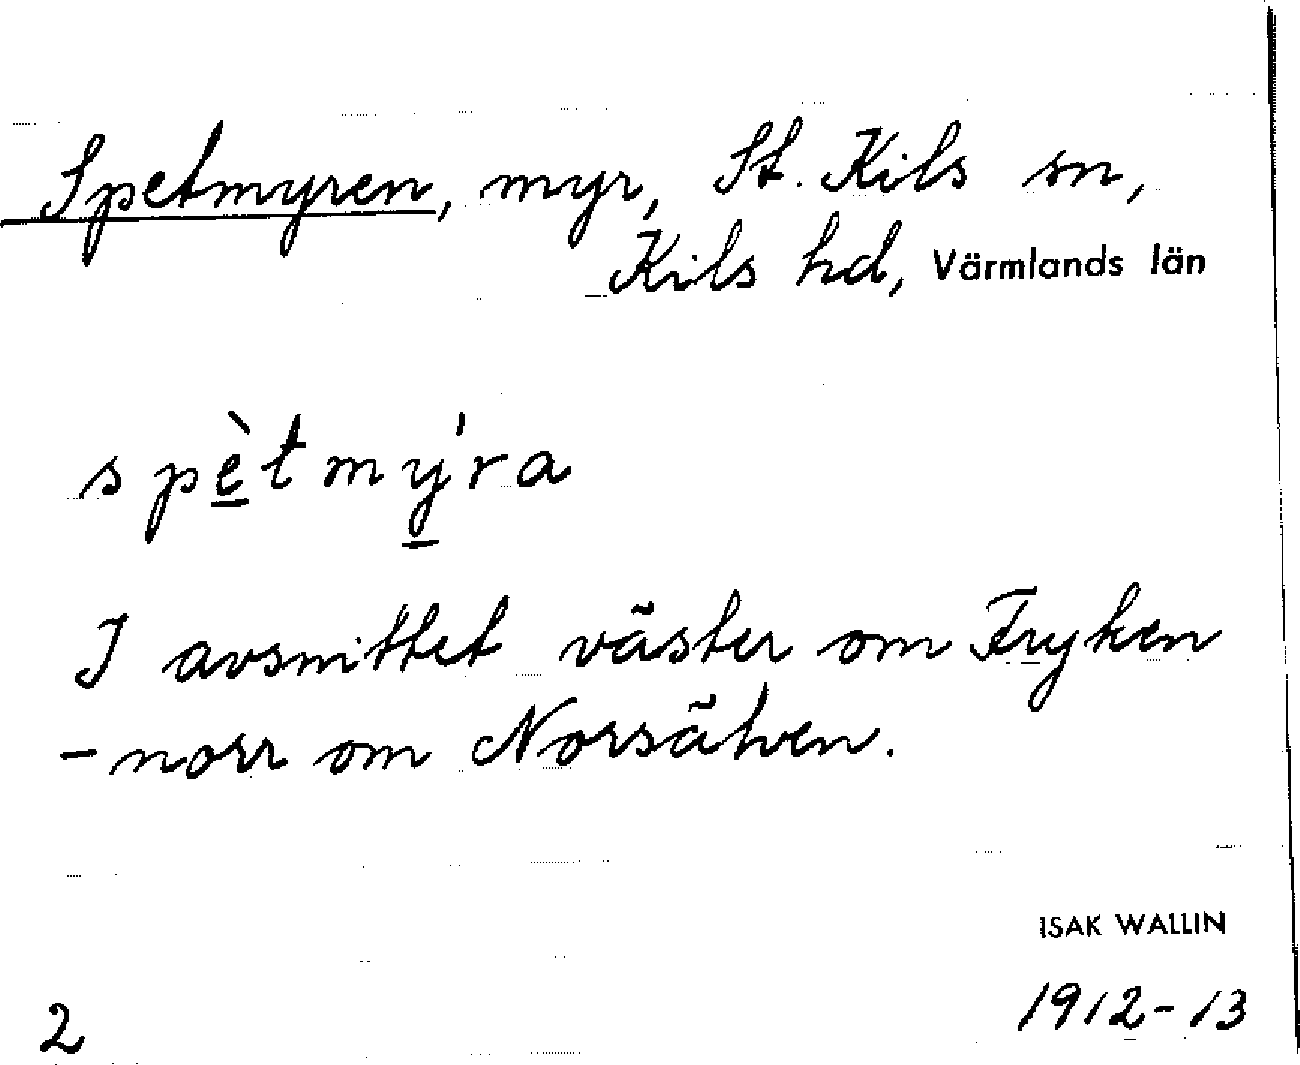 Spetmyren, myr, St. Kils sn,
Kils hd, Värmlands län
spètmýra
I avsnittet väster om Fryken
- norr om Norsälven.
ISAK WALLIN
2 1912-13